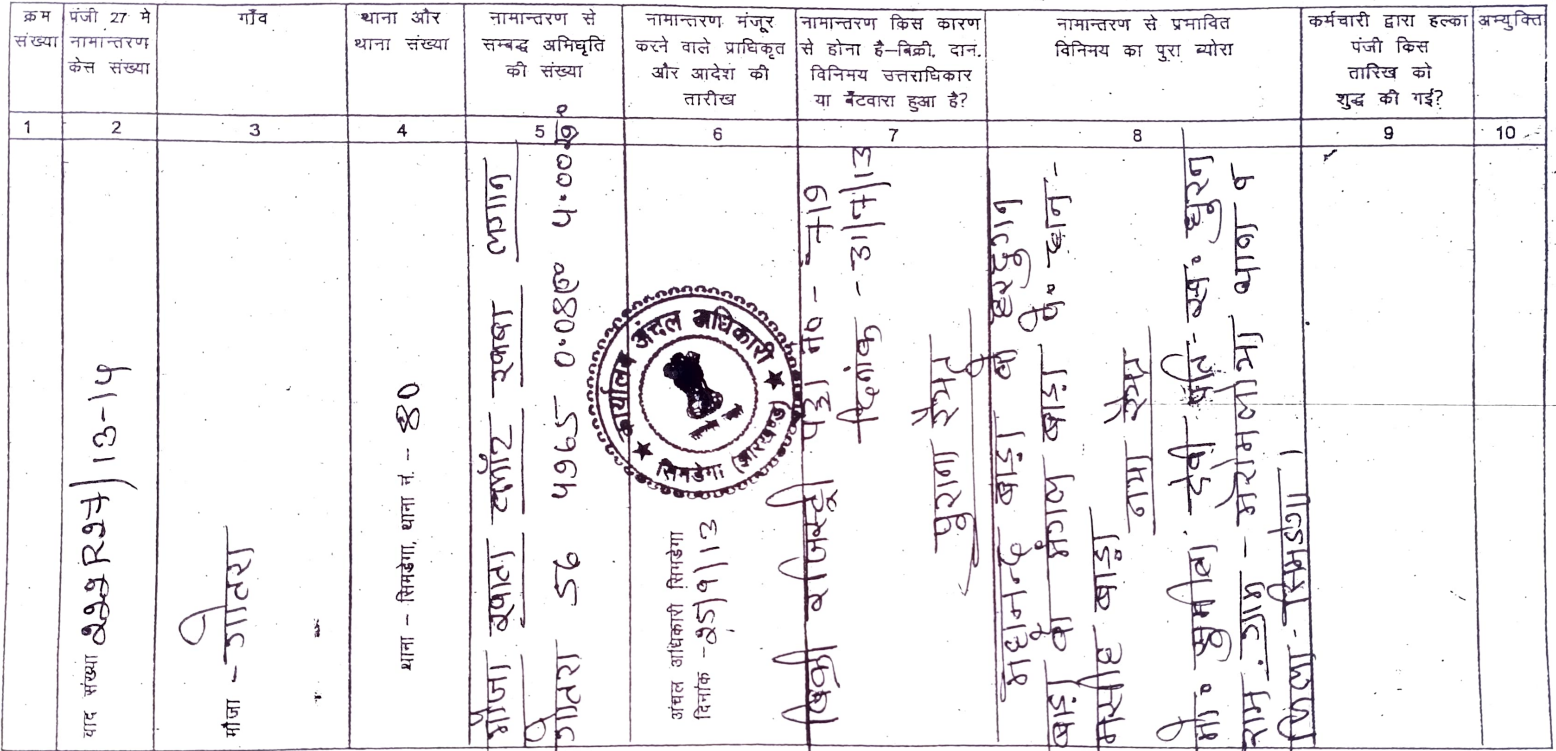 क्रम संख्या
पंजी 27 मे नामान्तरण केस संख्या
गाँव
थाना और थाना संख्या
नामान्तरण से सम्बद्ध अभिघृति की संख्या
नामान्तरण मंजूर करने वाले प्राधिकृत और आदेश की तारीख
नामान्तरण किस कारण से होना है–बिक्री, दान, विनिमय उत्तराधिकार या बँटवारा हुआ है?
नामान्तरण से प्रभावित विनिमय का पुरा ब्योरा
कर्मचारी द्वारा हल्का पंजी किस तारिख को शुद्ध की गई?
अभ्युक्ति
1 2 3 4 5 6 7 8 9 10
वाद संख्या R27/13-14
मौजा - गोतरा
थाना - सिमडेगा, थाना नं. - 80
मौजा खाता प्लॉट रकबा लगान
गोतरा 56 4965 0.08
अंचल अधिकारी सिमडेगा
दिनांक - 25/9/13
कार्यालय अंचल अधिकारी
सिमडेगा (झारखण्ड)
बिक्री रजिस्ट्री पट्टा नं० - 719
दिनांक - 31/7/13
पुराना रैयत
महानन्द बाड़ा वो
बाड़ा वो मंगल बाड़ा
मसीह बाड़ा
नाया रैयत
देवी पति - स्व०
राम ग्राम -
जिला - सिमडेगा।